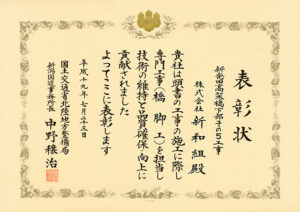 表彰状
新発田高架橋下部その5工事
株式会社 新和組 殿
貴社は頭書の工事の施工に際し
専門工事(橋脚工)を担当し
技術の維持と品質確保・向上に
貢献されました
よってここに表彰します
平成十九年七月二十三日
国土交通省北陸地方整備局
新潟国道事務所長 中野穣治